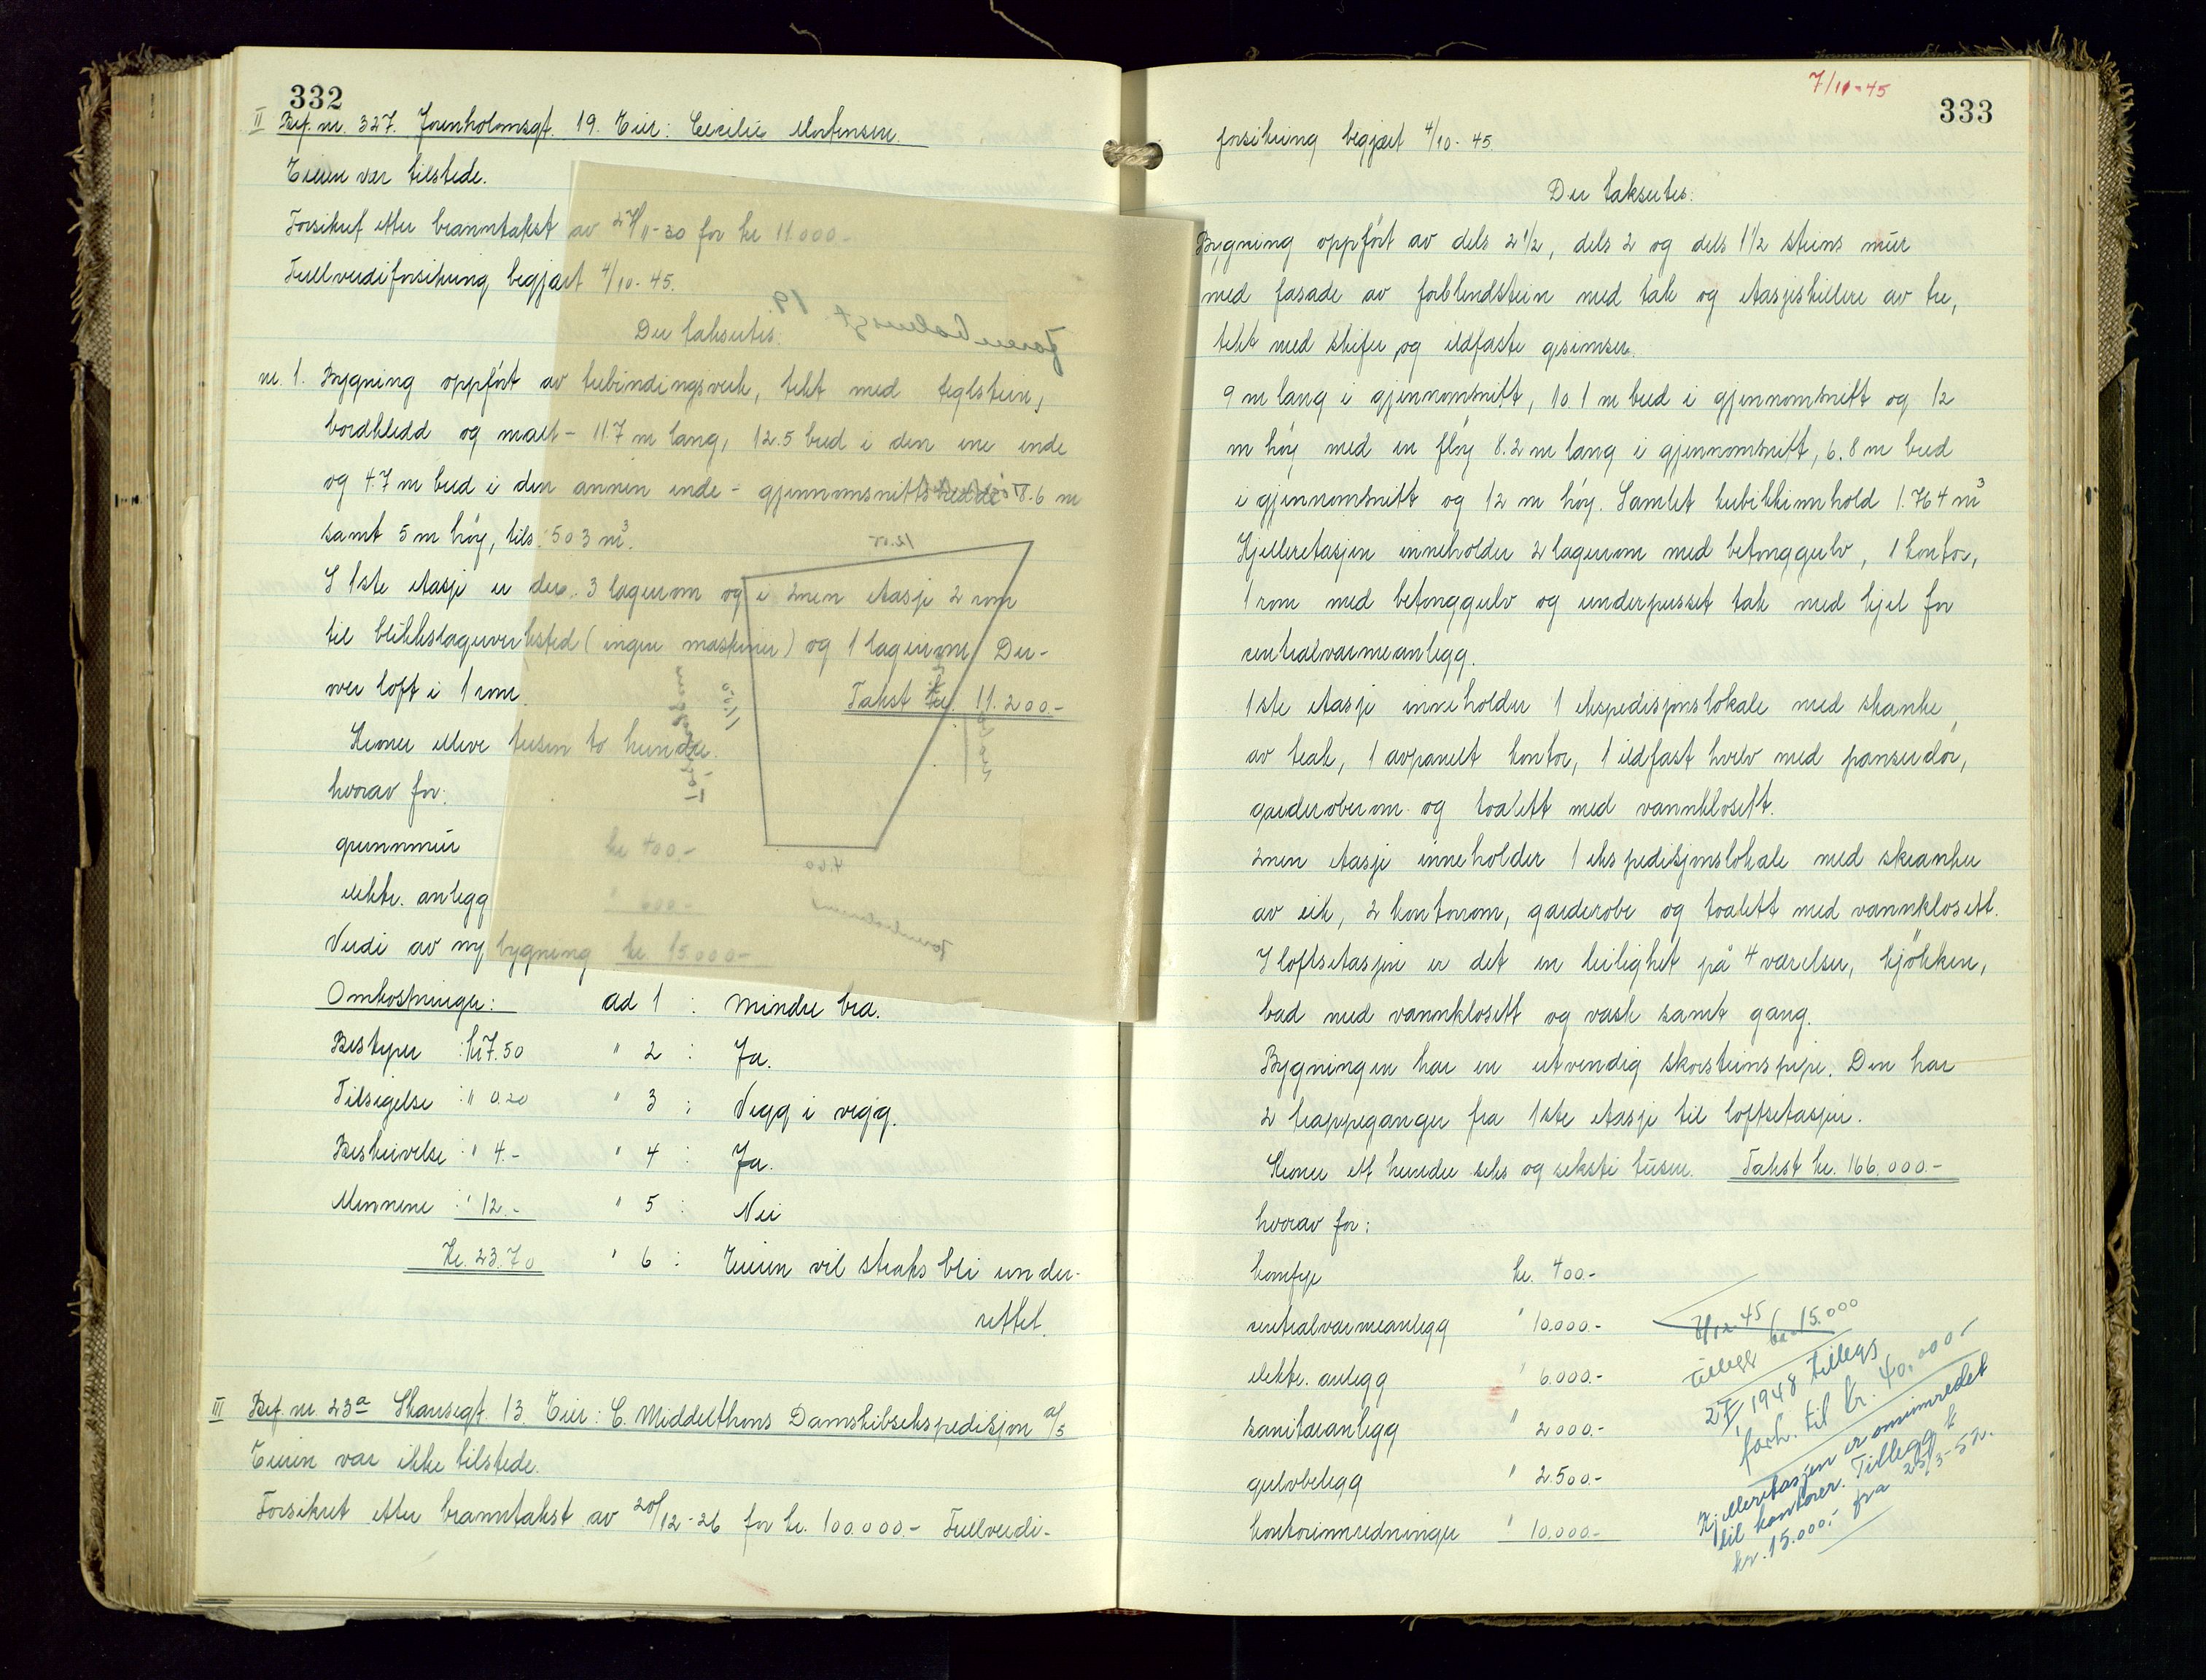 332
II Bef. nr. 327. Jorenholmsgt. 19. Eier: Cecilie Mortensen.
Eieren var tilstede.
Forsikret etter branntakst av 27/11-30 for kr 11.000.-
Fullverdiforsikring begjært 4/10-45.
Der takseres:
Jorenholmsgt. 19.
nr. 1. Bygning oppført av trebindingsverk, tekt med teglstein,
bordkledd og malt - 11.7 m lang, 12.5 bred i den ene ende
og 4.7 m bred i den annen ende - gjennomsnittsbredde 8.6 m
samt 5 m høy, tils. 503 m³.
12.50
I 1ste etasje er der 3 lagerrom og i 2nen etasje 2 rom
til blikkslagerverksted (ingen maskiner) og 1 lagerrom. Der-
over loft i 1 rom.
Takst kr. 11.200.-
11.50
Kroner elleve tusen to hundre.
hvorav for:
grunnmur kr 400.-
4.60
elektr. anlegg " 600.-
Jorenholmsgt
Verdi av ny bygning kr. 15.000.-
Omkostninger: ad 1 : Mindre bra.
Bestyrer : kr 7.50 " 2 : Ja.
Tilsigelse : " 0.20 " 3 : Vegg i vegg.
Beskrivelse : " 4.- " 4 : Ja.
Mennene : " 12.- " 5 : Nei
Kr. 23.70 " 6 : Eieren vil straks bli under-
rettet.
III Bef. nr. 23a Skansegt. 13. Eier: C. Middelthons Damskibsekspedisjon a/s
Eieren var ikke tilstede.
Forsikret etter branntakst av 20/12-26 for kr. 100.000.- Fullverdi-
7/11-45
333
forsikring begjært 4/10-45.
Der takseres:
Bygning oppført av dels 2 1/2, dels 2 og dels 1 1/2 steins mur
med fasade av forblendstein med tak og etasjeskillere av tre,
tekt med skifer og ildfaste gesimser.
9 m lang i gjennomsnitt, 10.1 m bred i gjennomsnitt og 12
m høy med en fløy 8.2 m lang i gjennomsnitt, 6.8 m bred
i gjennomsnitt og 12 m høy. Samlet kubikkinnhold 1.764 m³
Kjelleretasjen inneholder 2 lagerrom med betonggulv, 1 kontor,
1 rom med betonggulv og underpusset tak med kjel for
sentralvarmeanlegg.
1ste etasje inneholder 1 ekspedisjonslokale med skranke
av teak, 1 avpanelt kontor, 1 ildfast hvelv med panserdør,
garderoberom og toalett med vannklosett.
2nen etasje inneholder 1 ekspedisjonslokale med skranker
av eik, 2 kontorrom, garderobe og toalett med vannklosett.
I loftsetasjen er det en leilighet på 4 værelser, kjøkken,
bad med vannklosett og vask samt gang.
Bygningen har en utvendig skorsteinspipe. Den har
2 trappeganger fra 1ste etasje til loftsetasjen.
Kroner ett hundre seks og seksti tusen. Takst kr. 166.000.-
hvorav for:
komfyr kr. 400.-
sentralvarmeanlegg " 10.000.-
elektr. anlegg " 6.000.-
sanitæranlegg " 2000.-
gulvbelegg " 2.500.-
kontorinnredninger " 10.000.-
8/12-45
tillegg kr. 15.000
1948 tillegs
forh. til kr. 40.000.-
Kjelleretasjen er ominnredet
til kontorer. Tillegg
kr. 15.000.- fra 25/3-52.